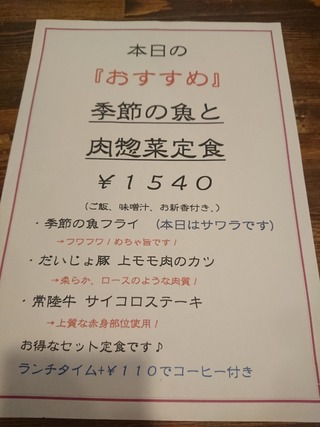 本日の
『おすすめ』
季節の魚と
肉惣菜定食
￥１５４０
（ご飯、味噌汁、お新香付き。）
・季節の魚フライ （本日はサワラです）
→フワフワ！めちゃ旨です！
・だいじょ豚 上モモ肉のカツ
→柔らか、ロースのような肉質！
・常陸牛 サイコロステーキ
→上質な赤身部位使用！
お得なセット定食です♪
ランチタイム+￥１１０でコーヒー付き